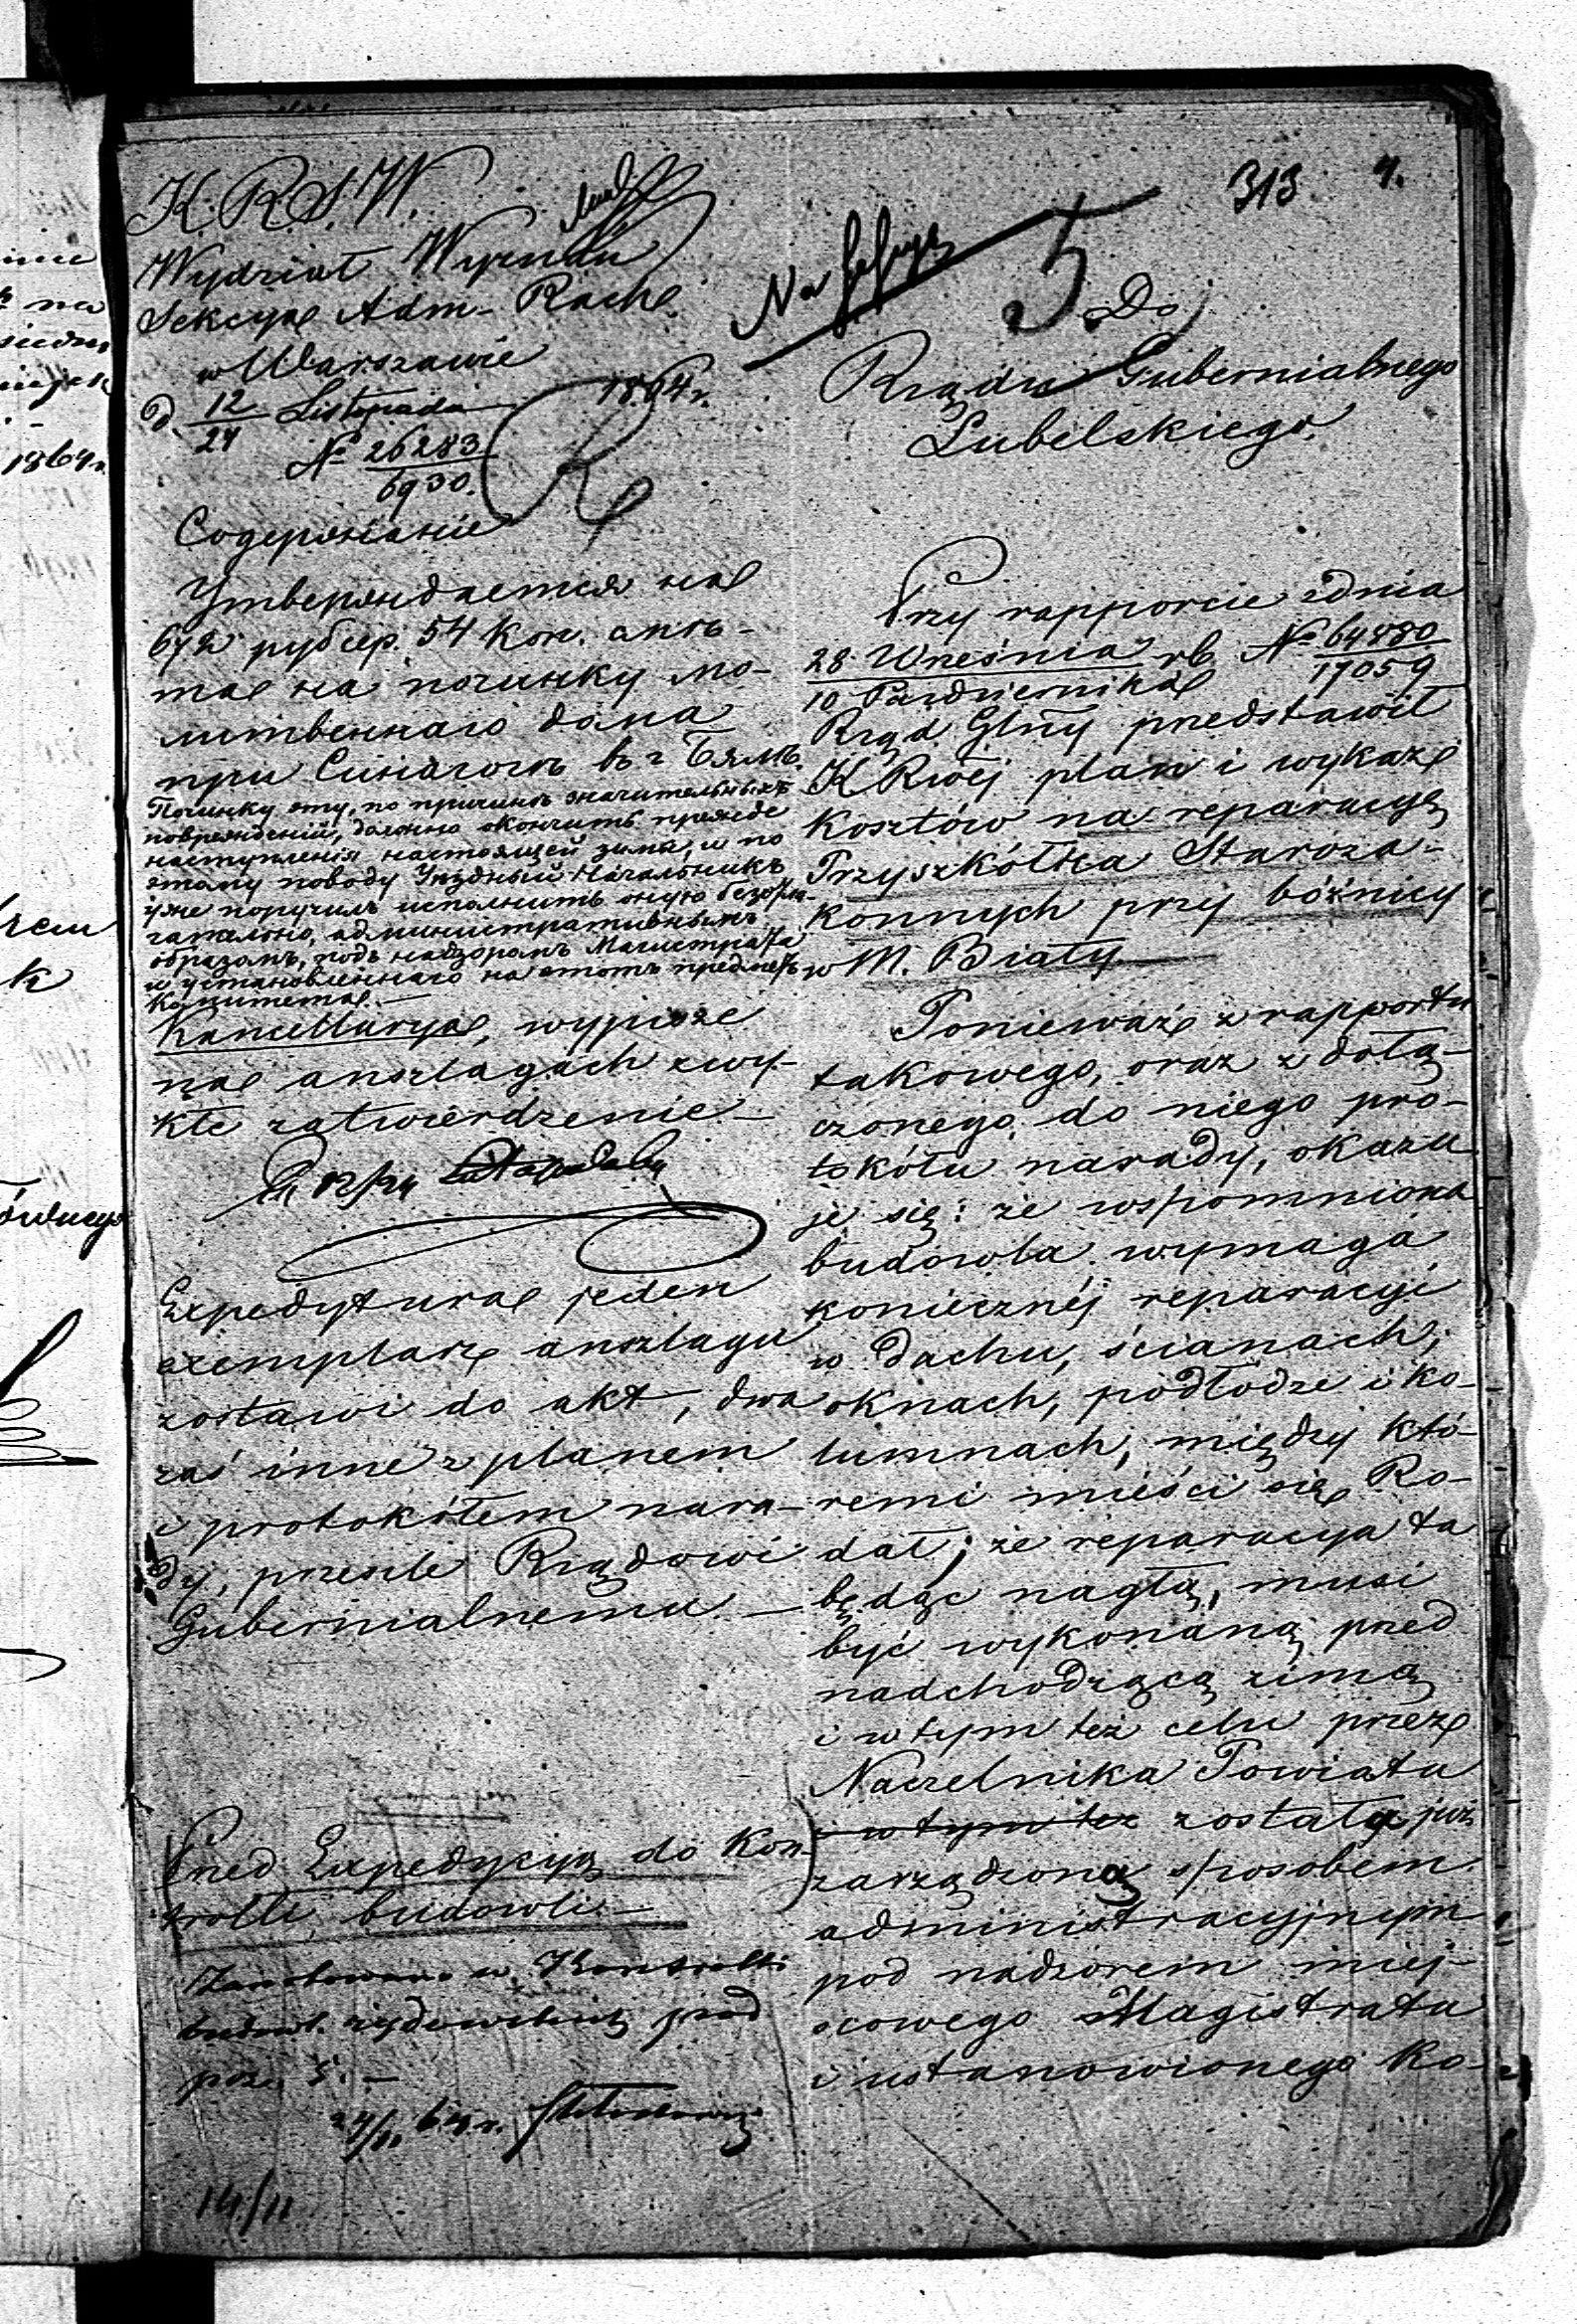 313
K. R. S. W.
Wydział Wyznań
Sekcya Adm- Rach.
w Warszawie
d. 12/24 Listopada 1864 r.
№ 26283/6930.
Содержаніе
Утверждается на
672 руб сер. 54 коп. смѣ-
та на починку мо-
литвеннаго дома
при Синагогѣ въ г Бялѣ.
Починку эту, по причинѣ значительныхъ
поврежденій, должно окончить прежде
наступленія настоящей зимы, и по
этому поводу Уѣздный Начальникъ
уже поручилъ исполнить оную безотла-
гательно, административнымъ
образомъ, подъ надзоромъ Магистрата
и установленнаго на этотъ предметъ
Комитета. —
Kancellarya, wypisze
na anszlagach zwy-
kłe zatwierdzenie —
12/24
Expedytura jeden
exemplarz anszlagu
zostawi do akt, dwa
zaś inne z planem
i protokółem nara-
dy, prześle Rządowi
Gubernialnemu. —
Przed Expedycyą do Kon-
trolli budowli —
w Kontrolli
budowl. żydowskich pod
poz. 5. —
24/11 64 r.
14/11
5
Do
Rządu Gubernialnego
Lubelskiego.
Przy rapporcie zdnia
28 Września/10 Października rb № 64880/17059
Rząd Glny przedstawił
KRwej plan i wykaz
kosztów na reparacyę
Przyszkółka Staroza-
konnych przy bóżnicy
w M. Biały
Ponieważ z rapportu
takowego, oraz z dołą-
czonego do niego pro-
tokółu narady, okazu
je się: że wspomniona
budowla wymaga
koniecznéj reparacyi
w dachu, ścianach,
oknach, podłodze i ko-
lumnach, między któ-
remi mieści się Ro-
dał; że reparacya ta
będąc nagłą, musi
być wykonaną przed
nadchodzącą zimą
i w tym też celu przez
Naczelnika Powiatu
i w tym też została już
zarządzoną sposobem
administracyjnym
pod nadzorem miej-
scowego Magistratu
i ustanowionego Ko-